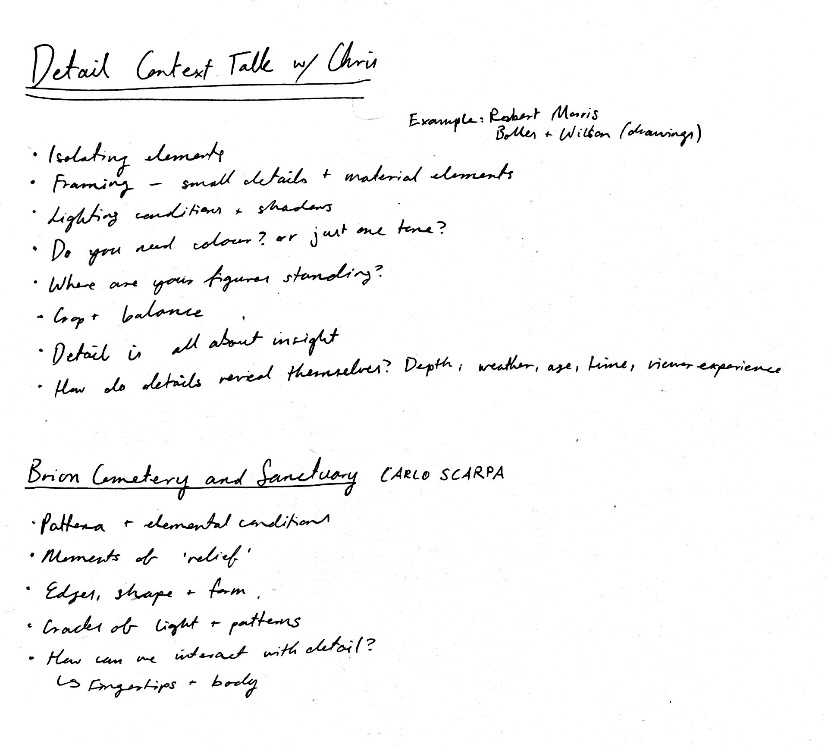 Detail Context Talk w/ Chris
Example: Robert Morris
Bolles + Wilson (drawings)
· Isolating elements
· Framing - small details + material elements
· Lighting conditions + shadows
· Do you need colour? or just one tone?
· Where are your figures standing?
- Crop + balance
· Detail is all about insight
· How do details reveal themselves? Depth, weather, age, time, viewer experience
Brion Cemetery and Sanctuary CARLO SCARPA
· Pattena + elemental conditions
· Moments of 'relief'
· Edges, shape + form.
· Cracks of light + patterns
· How can we interact with detail?
↳ Fingertips + body